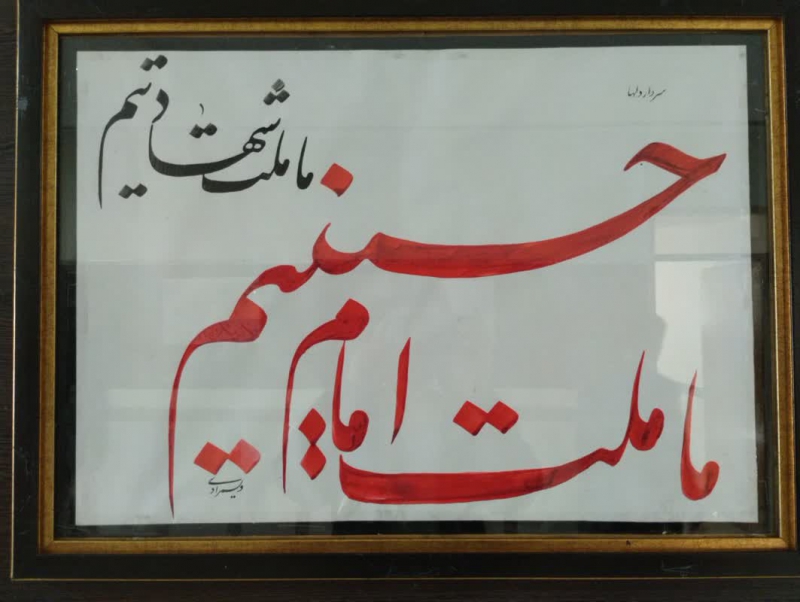 سردار دلها
ما ملت شهادتیم
ما ملت امام حسینیم